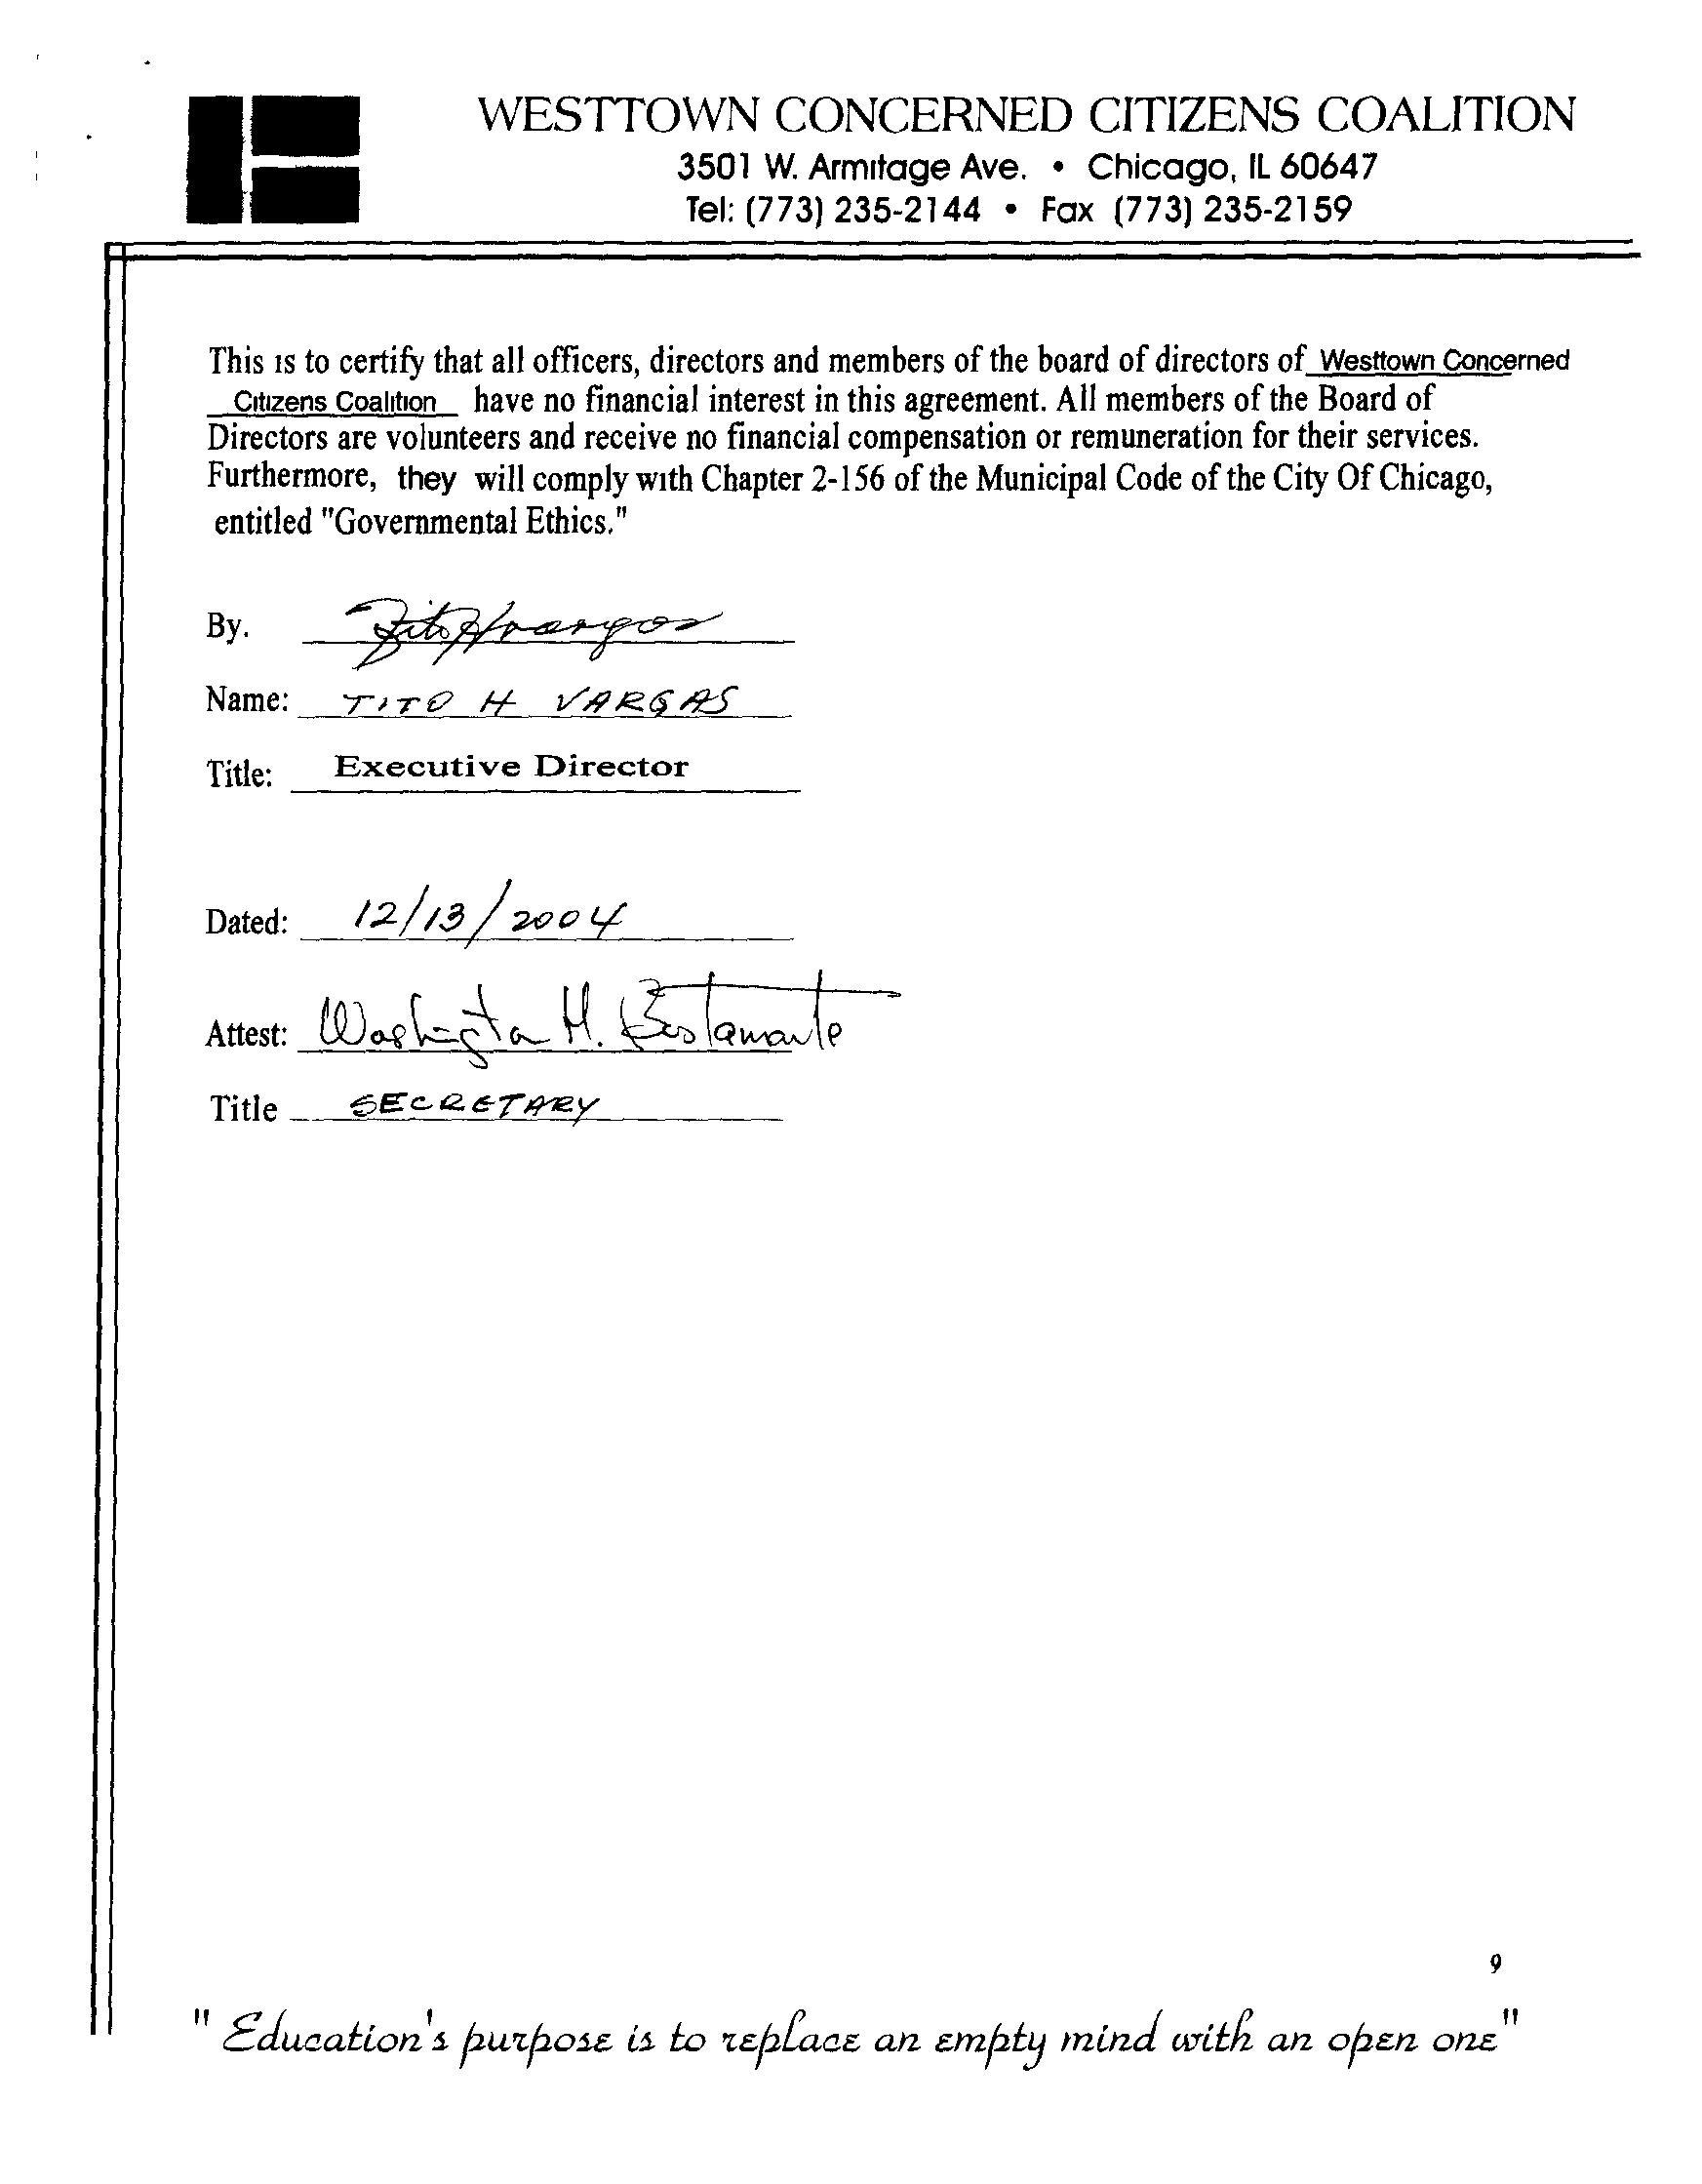 WESTTOWN CONCERNED CITIZENS COALITION
3501 W. Armitage Ave. • Chicago, IL 60647
Tel: (773) 235-2144 • Fax (773) 235-2159
This is to certify that all officers, directors and members of the board of directors of Westtown Concerned
Citizens Coalition have no financial interest in this agreement. All members of the Board of
Directors are volunteers and receive no financial compensation or remuneration for their services.
Furthermore, they will comply with Chapter 2-156 of the Municipal Code of the City Of Chicago,
entitled "Governmental Ethics."
By. Tito H Vargas
Name: TITO H VARGAS
Title: Executive Director
Dated: 12/13/2004
Attest: Washington H. Bustamante
Title SECRETARY
9
"Education's purpose is to replace an empty mind with an open one"